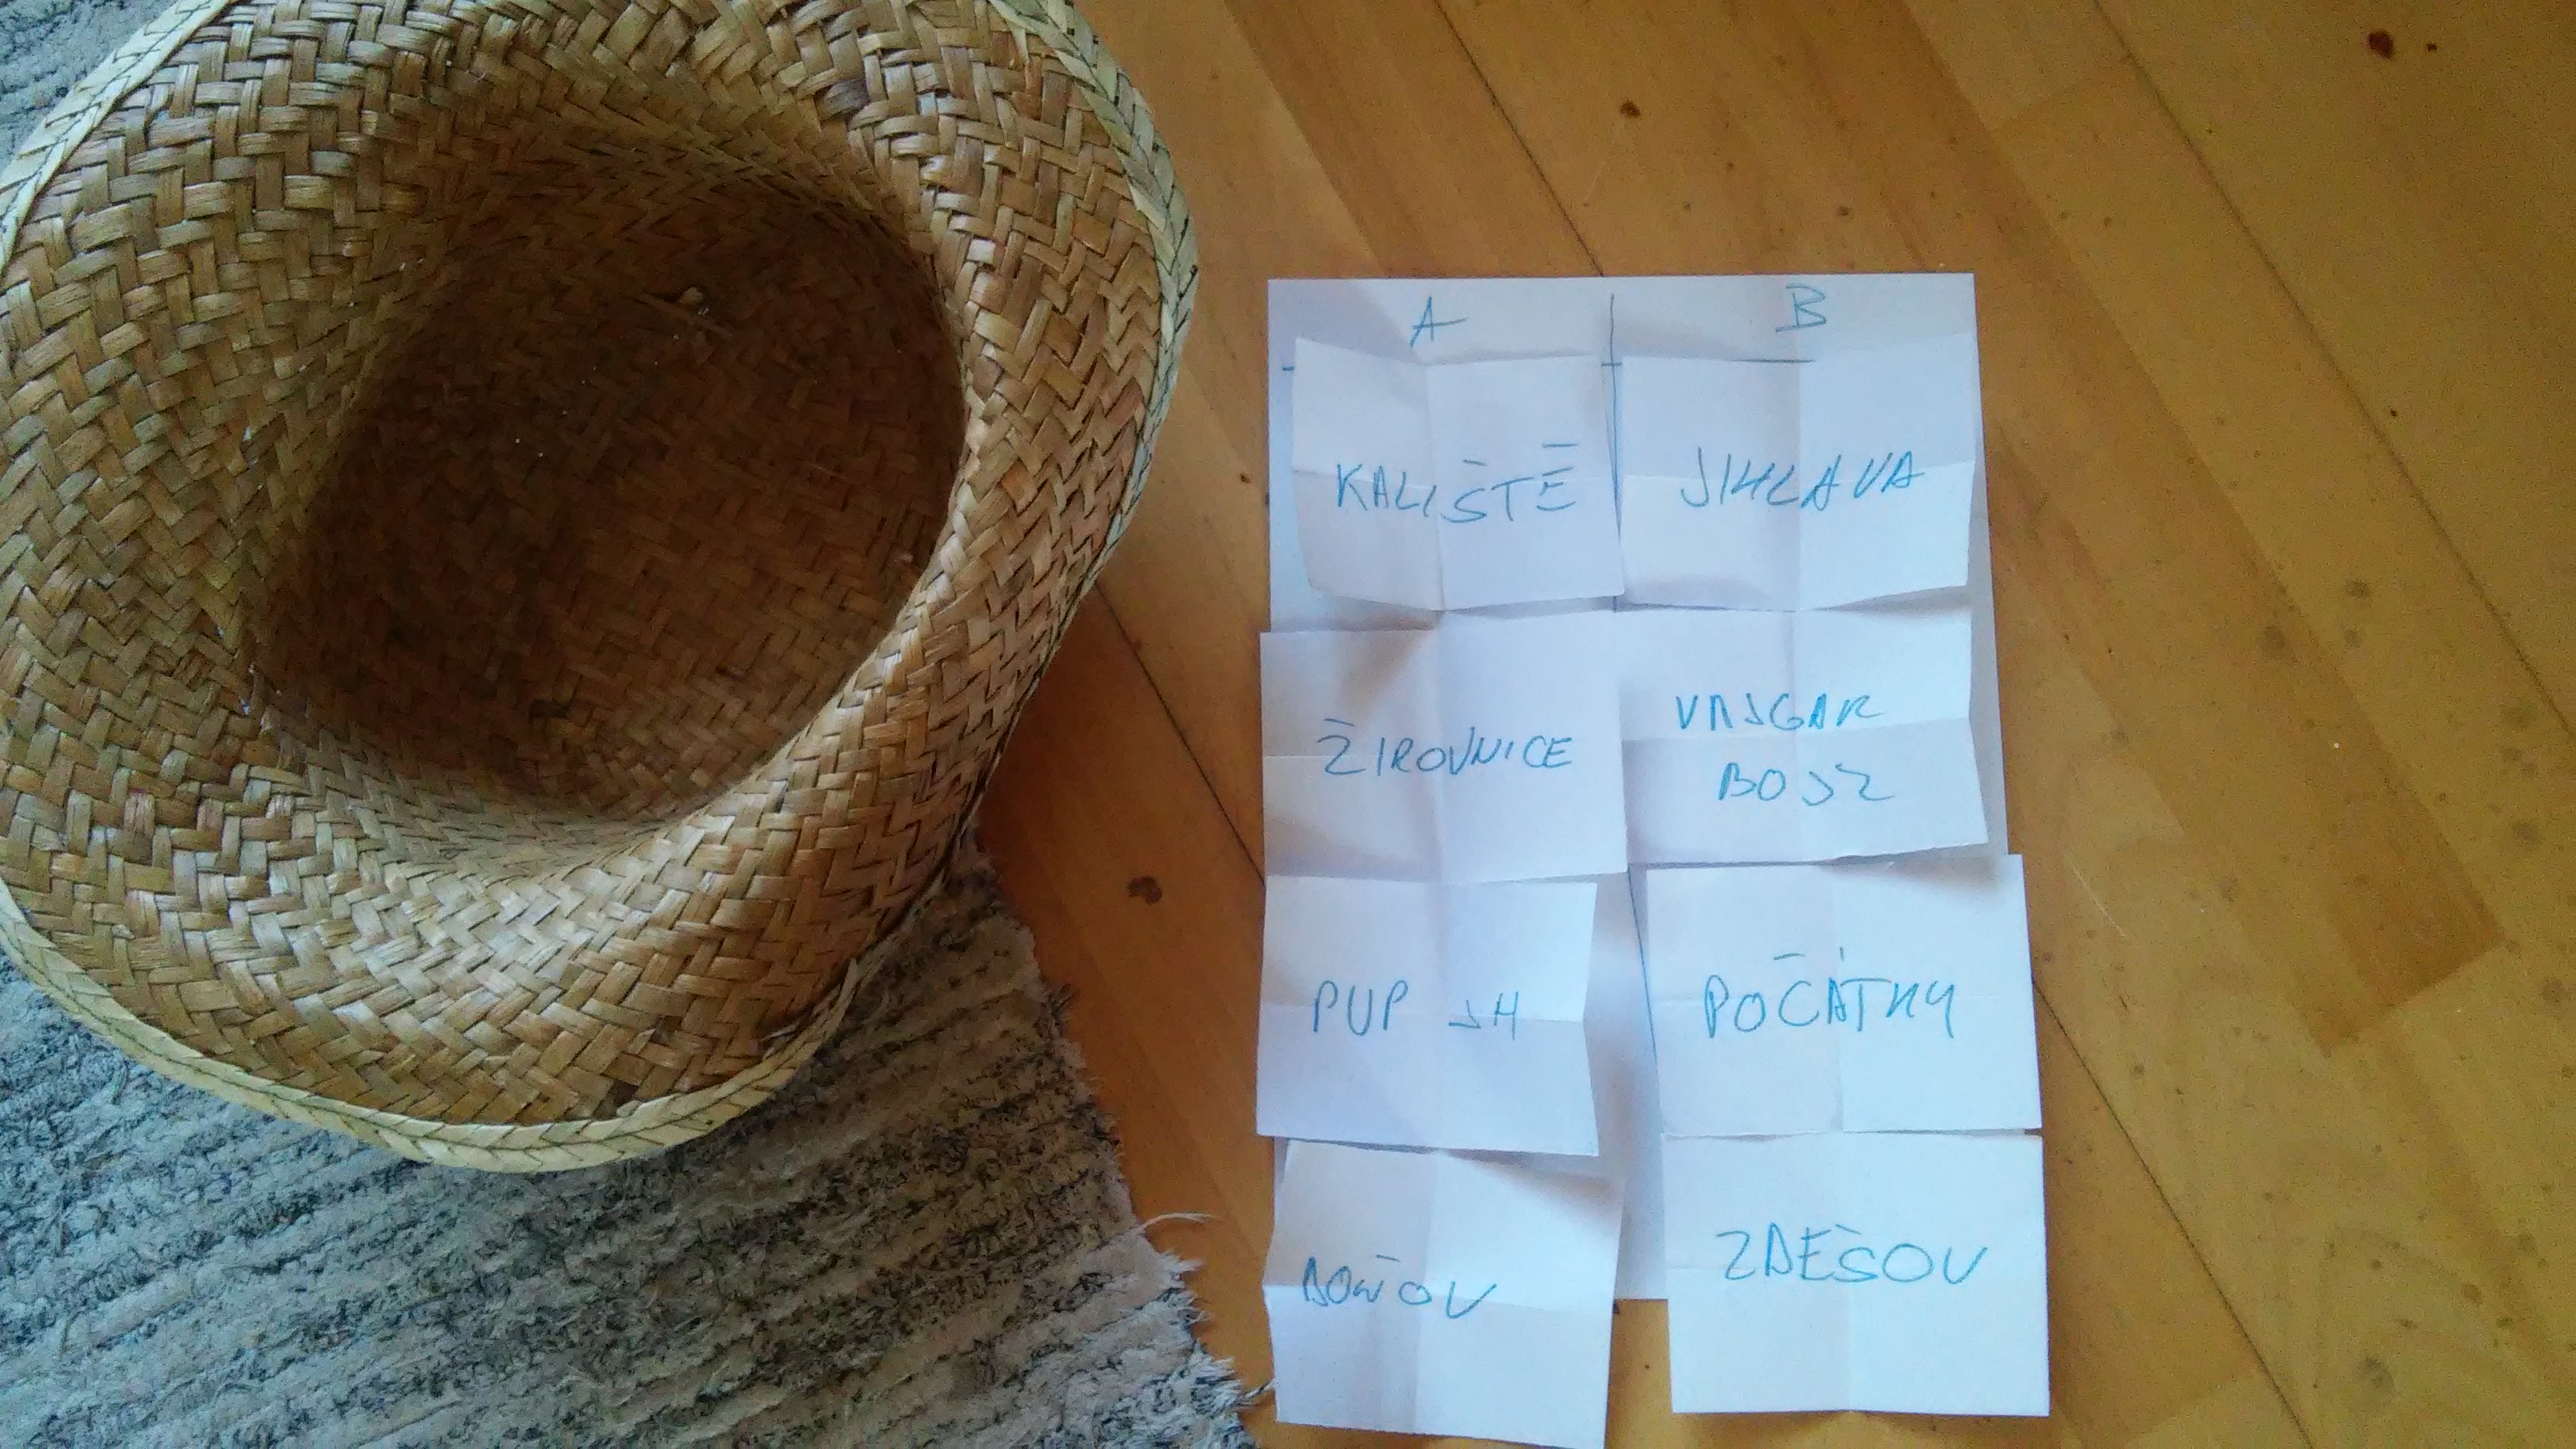 A B
KALIŠTĚ JIHLAVA
ŽIROVNICE VAJGAR
BOJZ
PUP JH POČÁTKY
BOŇOV ZDEŠOV